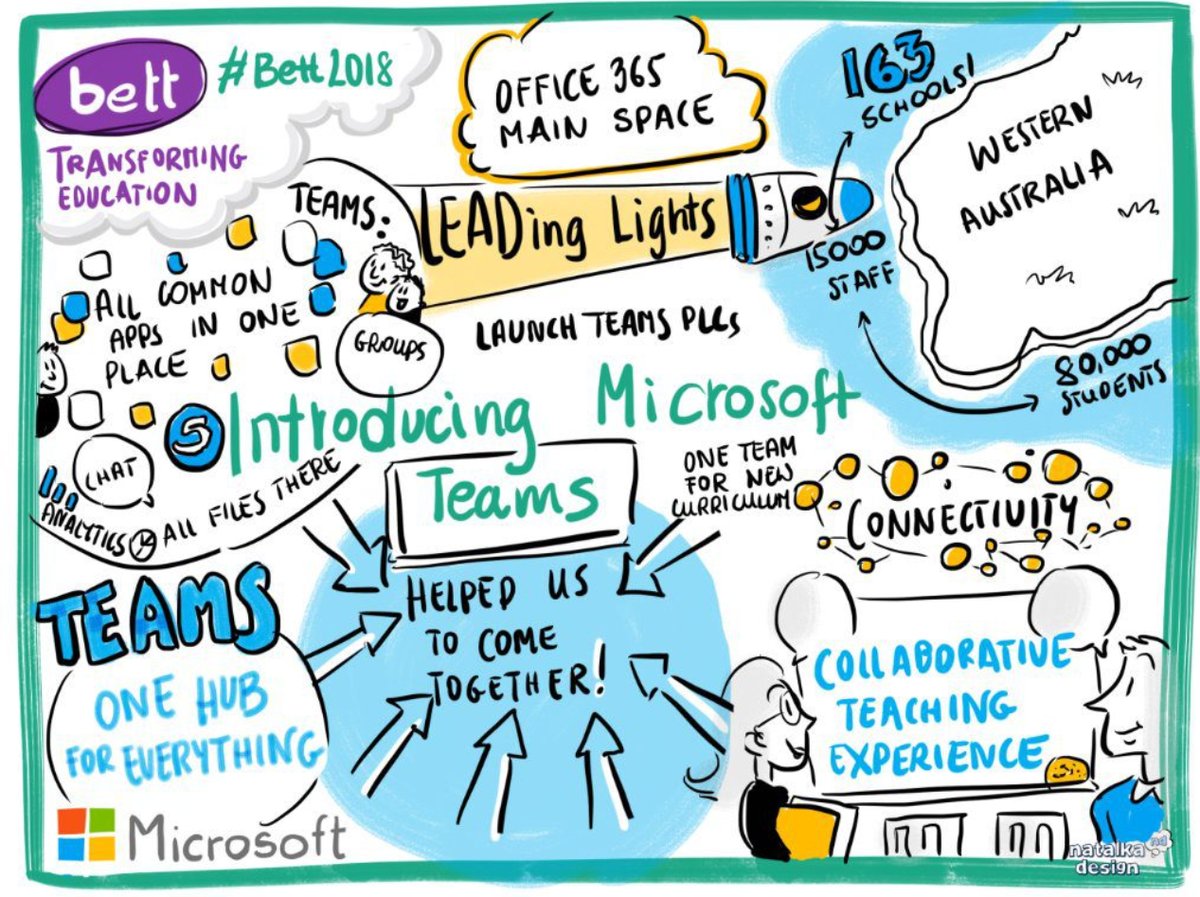 bett
#Bett2018
TRANSFORMING
EDUCATION
OFFICE 365
MAIN SPACE
163
SCHOOLS!
WESTERN
AUSTRALIA
15000
STAFF
80,000
STUDENTS
LEADing Lights
LAUNCH TEAMS PLCs
TEAMS:
ALL COMMON
APPS IN ONE
PLACE
GROUPS
CHAT
ANALYTICS
ALL FILES THERE
5
Introducing Microsoft
Teams
HELPED US
TO COME
TOGETHER!
ONE TEAM
FOR NEW
CURRICULUM
CONNECTIVITY
TEAMS
ONE HUB
FOR EVERYTHING
COLLABORATIVE
TEACHING
EXPERIENCE
Microsoft
natalka
nd
design